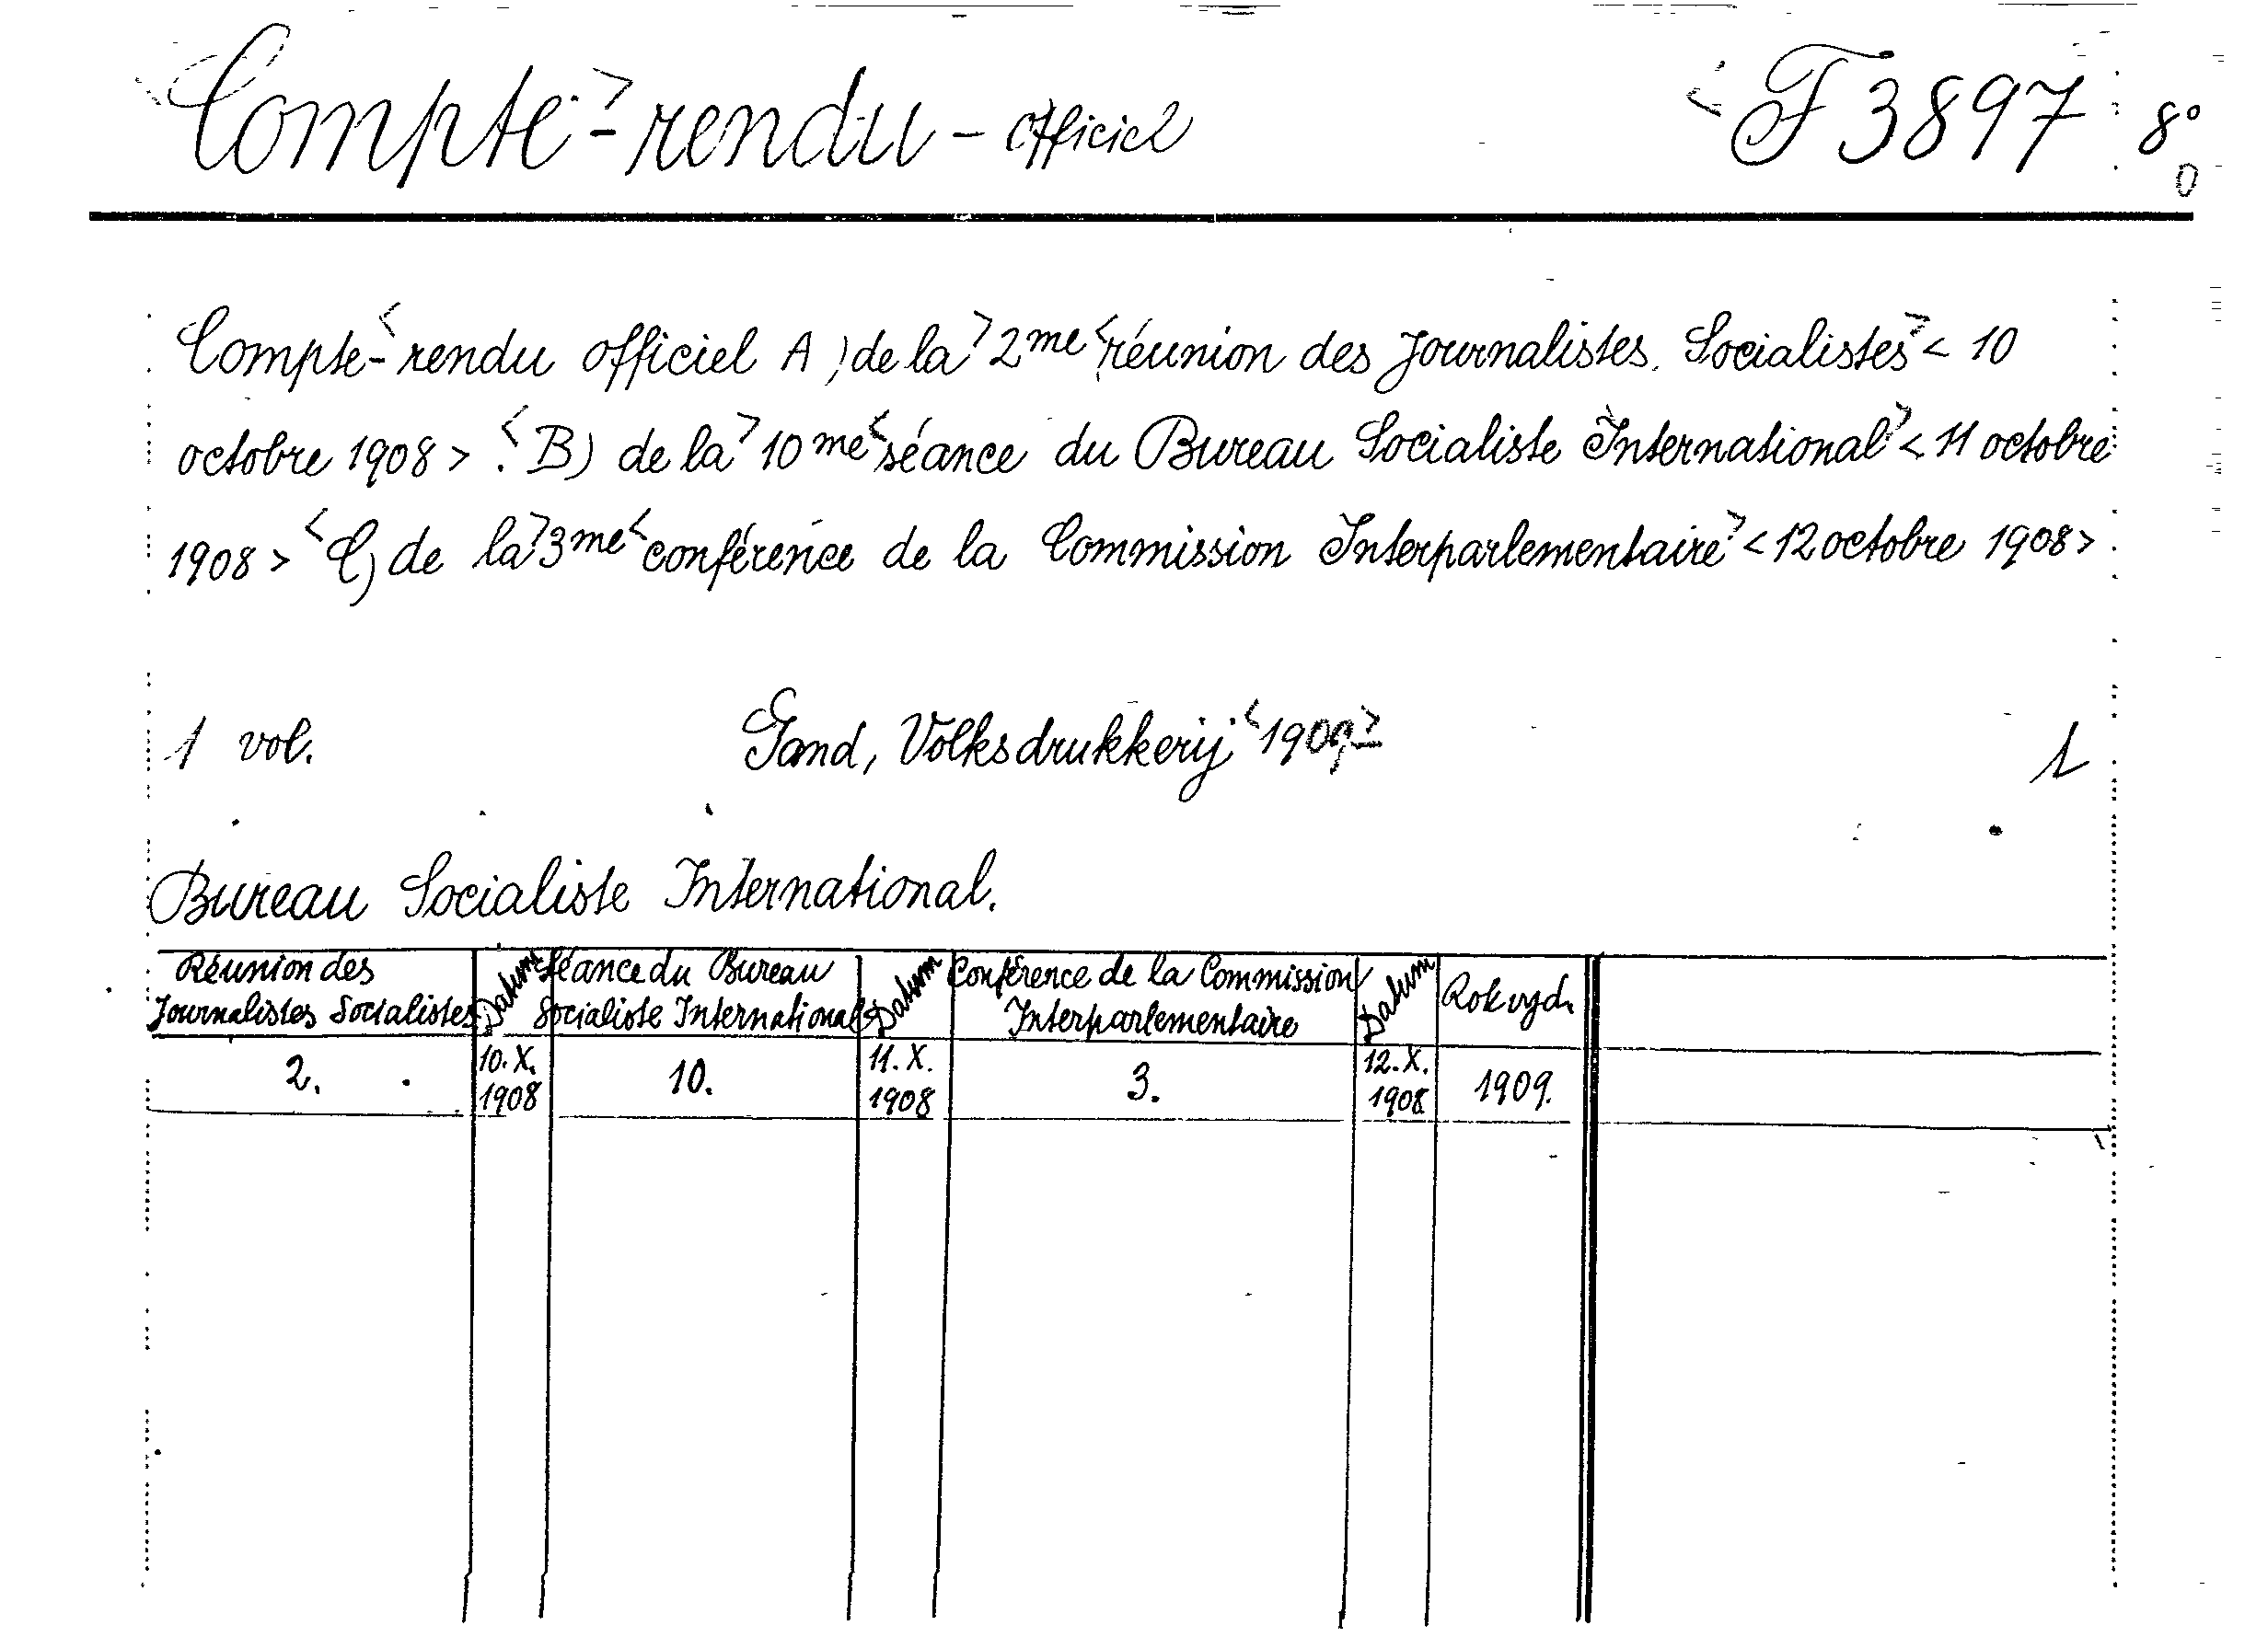 Compte-rendu - officiel F 3897 8°
Compte-rendu officiel A) de la 2me réunion des Journalistes Socialistes < 10
octobre 1908 > . B) de la 10me séance du Bureau Socialiste International < 11 octobre
1908 > C) de la 3me conférence de la Commission Interparlementaire < 12 octobre 1908 >
1 vol. Gand, Volksdrukkerij 1909 1
Bureau Socialiste International.
Réunion des Journalistes Socialistes Datum Séance du Bureau Socialiste International Datum Conférence de la Commission Interparlementaire Datum Rok vyd.
2. 10.X. 1908 10. 11.X. 1908 3. 12.X. 1908 1909.